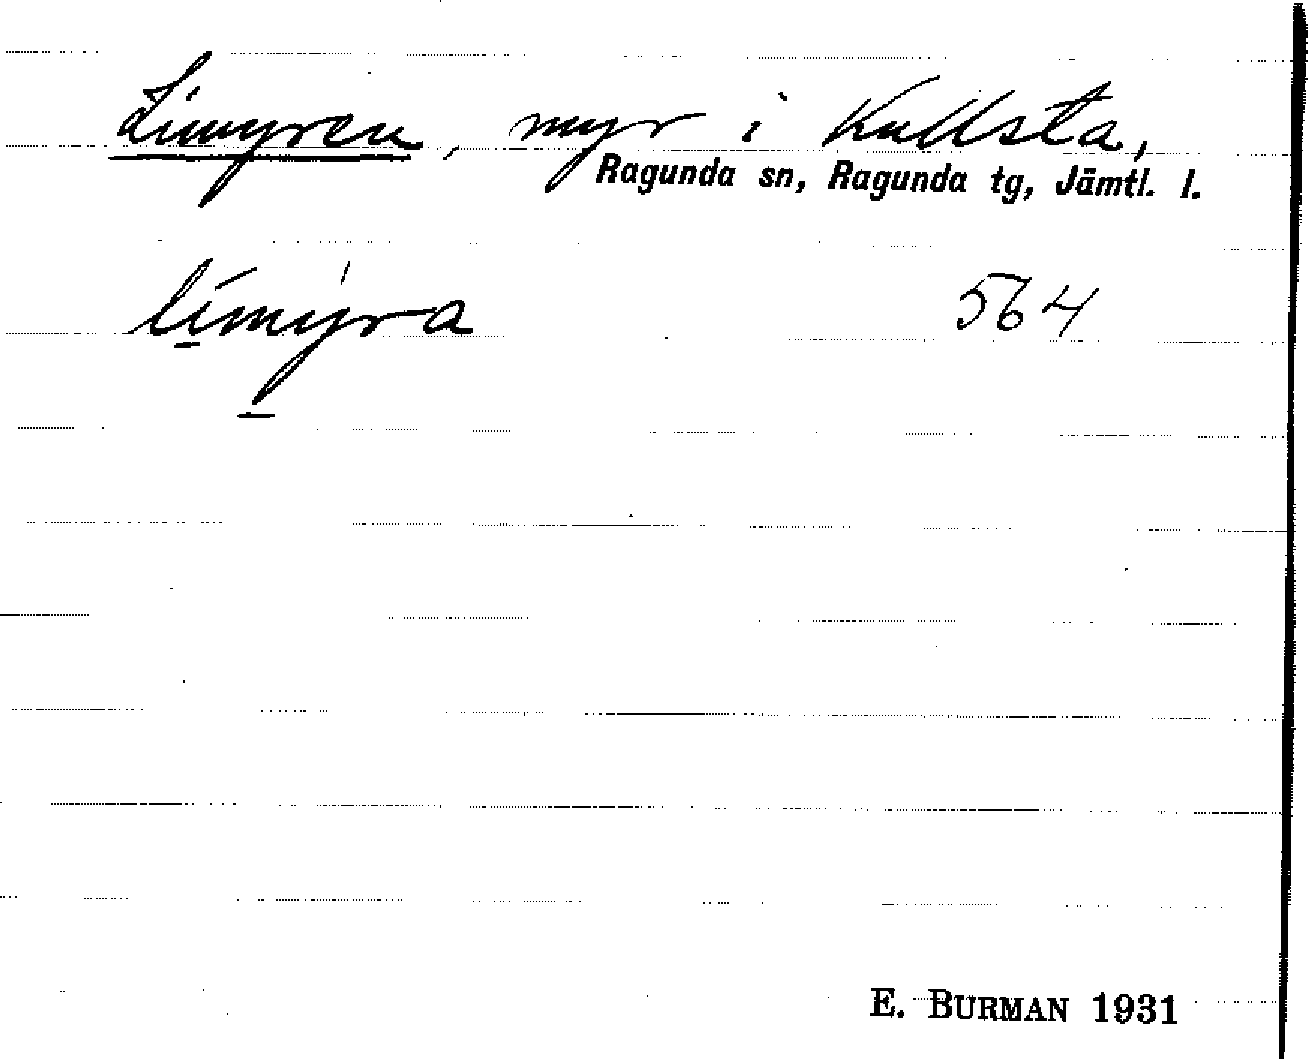 Limyren, myr i Kullsta,
Ragunda sn, Ragunda tg, Jämtl. l.
límýra 564
E. BURMAN 1931